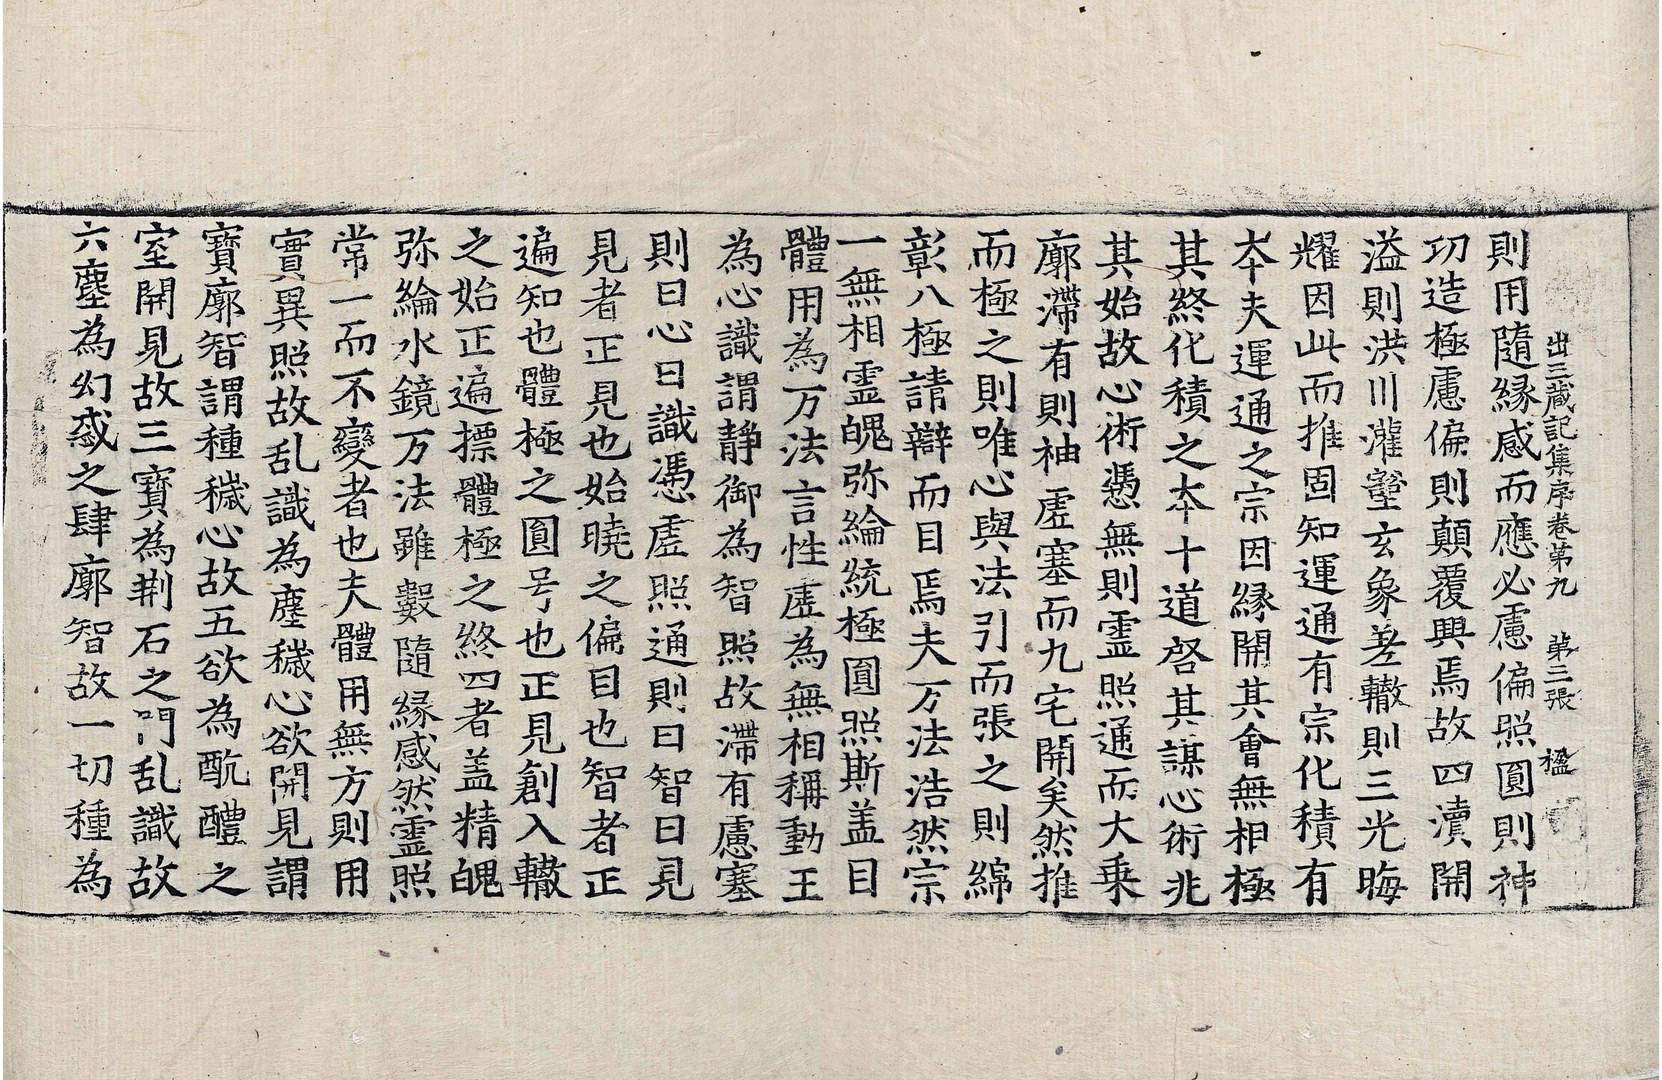 出三藏記集序卷第九　第三張　楹
則用隨緣感而應必慮偏照圓則神
功造極慮偏則顛覆興焉故四瀆開
溢則洪川灌壑玄象差轍則三光晦
耀因此而推固知運通有宗化積有
夲夫運通之宗因緣開其會無相極
其終化積之夲十道啓其謀心術兆
其始故心術憑無則霊照通而大乗
廓滯有則神虗塞而九宅開矣然推
而極之則唯心與法引而張之則綿
彰八極請辯而目焉夫万法浩然宗
一無相霊魄弥綸統極圓照斯盖目
體用為万法言性虗為無相稱動王
為心識謂静御為智照故滯有慮塞
則曰心曰識憑虗照通則曰智曰見
見者正見也始曉之偏目也智者正
遍知也體極之圓号也正見創入轍
之始正遍摽體極之終四者盖精魄
弥綸水鏡万法雖數隨緣感然霊照
常一而不變者也夫體用無方則用
實異照故乱識為塵穢心欲開見謂
寶廓智謂種穢心故五欲為酖醴之
室開見故三寶為荆石之門乱識故
六塵為幻惑之肆廓智故一切種為